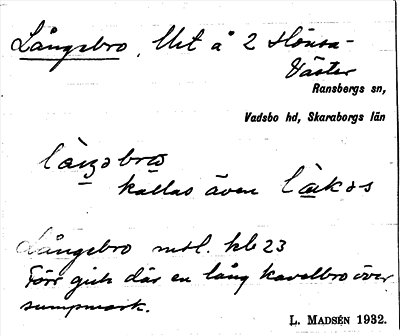 Långebro, Urt å 2 Hönsa-
Väster
Ransbergs sn,
Vadsbo hd, Skaraborgs län
kallas även
Långebro mstl. kb 23
Förr gick där en lång kavelbro över
sumpmark.
L. MADSÉN 1932.